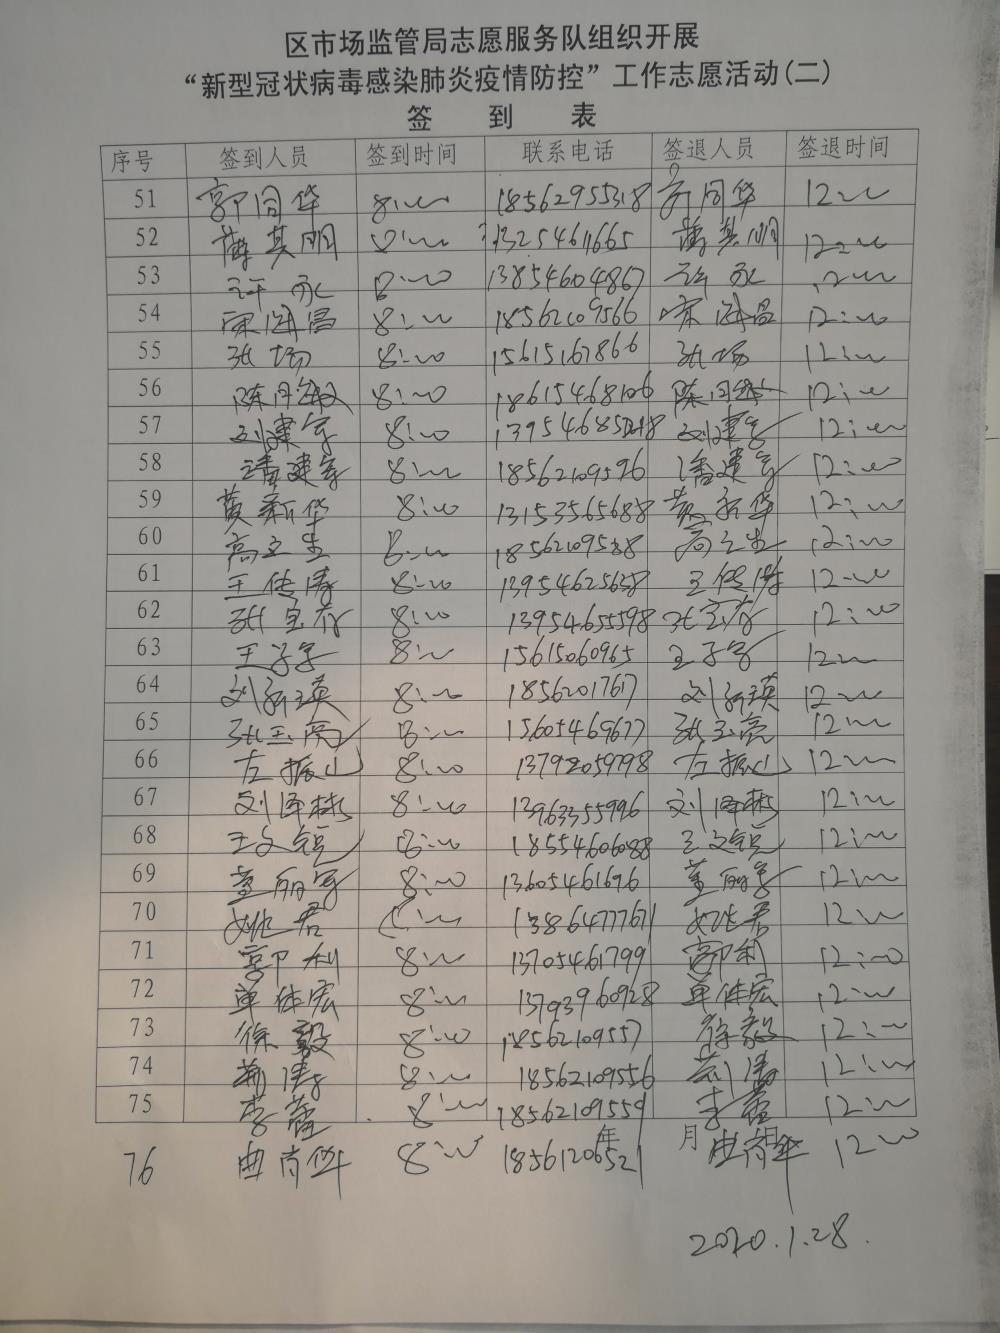 区市场监管局志愿服务队组织开展
“新型冠状病毒感染肺炎疫情防控”工作志愿活动(二)
签 到 表
序号 签到人员 签到时间 联系电话 签退人员 签退时间
51 郭同华 8:00 18562955318 郭同华 12:00
52 薄其明 8:00 13254611665 薄其明 12:00
53 许永 8:00 13854604867 许永 12:00
54 宋海昌 8:00 18562109566 宋海昌 12:00
55 张场 8:00 15615167866 张场 12:00
56 陈丹敏 8:00 18615468106 12:00
57 刘建军 8:00 刘建军 12:00
58 潘建军 8:00 18562109596 潘建军 12:00
59 黄新华 8:00 13153565688 黄新华 12:00
60 高立生 8:00 18562109538 高立生 12:00
61 王传涛 8:00 13954625658 王传涛 12:00
62 张宝存 8:00 13954655598 张宝存 12:00
63 王子军 8:00 15615060965 王子军 12:00
64 刘新瑛 8:00 18562017617 刘新瑛 12:00
65 张玉亮 8:00 15605469677 张玉亮 12:00
66 左振山 8:00 13792059798 左振山 12:00
67 刘泽彬 8:00 13963355996 刘泽彬 12:00
68 王文锐 8:00 18554606088 王文锐 12:00
69 董丽军 8:00 13605461696 董丽军 12:00
70 姚君 8:00 13864777671 姚君 12:00
71 郭利 8:00 13705461799 郭利 12:00
72 单体宏 8:00 13793960928 单体宏 12:00
73 徐毅 8:00 18562109557 徐毅 12:00
74 荆涛 8:00 18562109556 荆涛 12:00
75 李蕾 8:00 18562109559 李蕾 12:00
年 月 日
76 曲尚华 8:00 18561206521 曲尚华 12:00
2020.1.28.